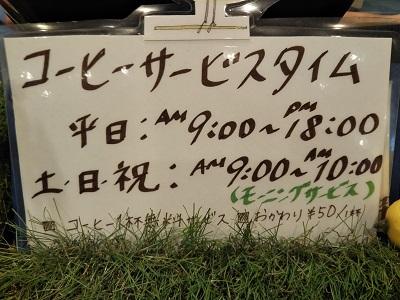 コーヒーサービスタイム
平日：AM9:00～PM18:00
土・日・祝：AM9:00～AM10:00
（モーニングサービス）
コーヒー1杯無料サービス おかわり¥50/1杯